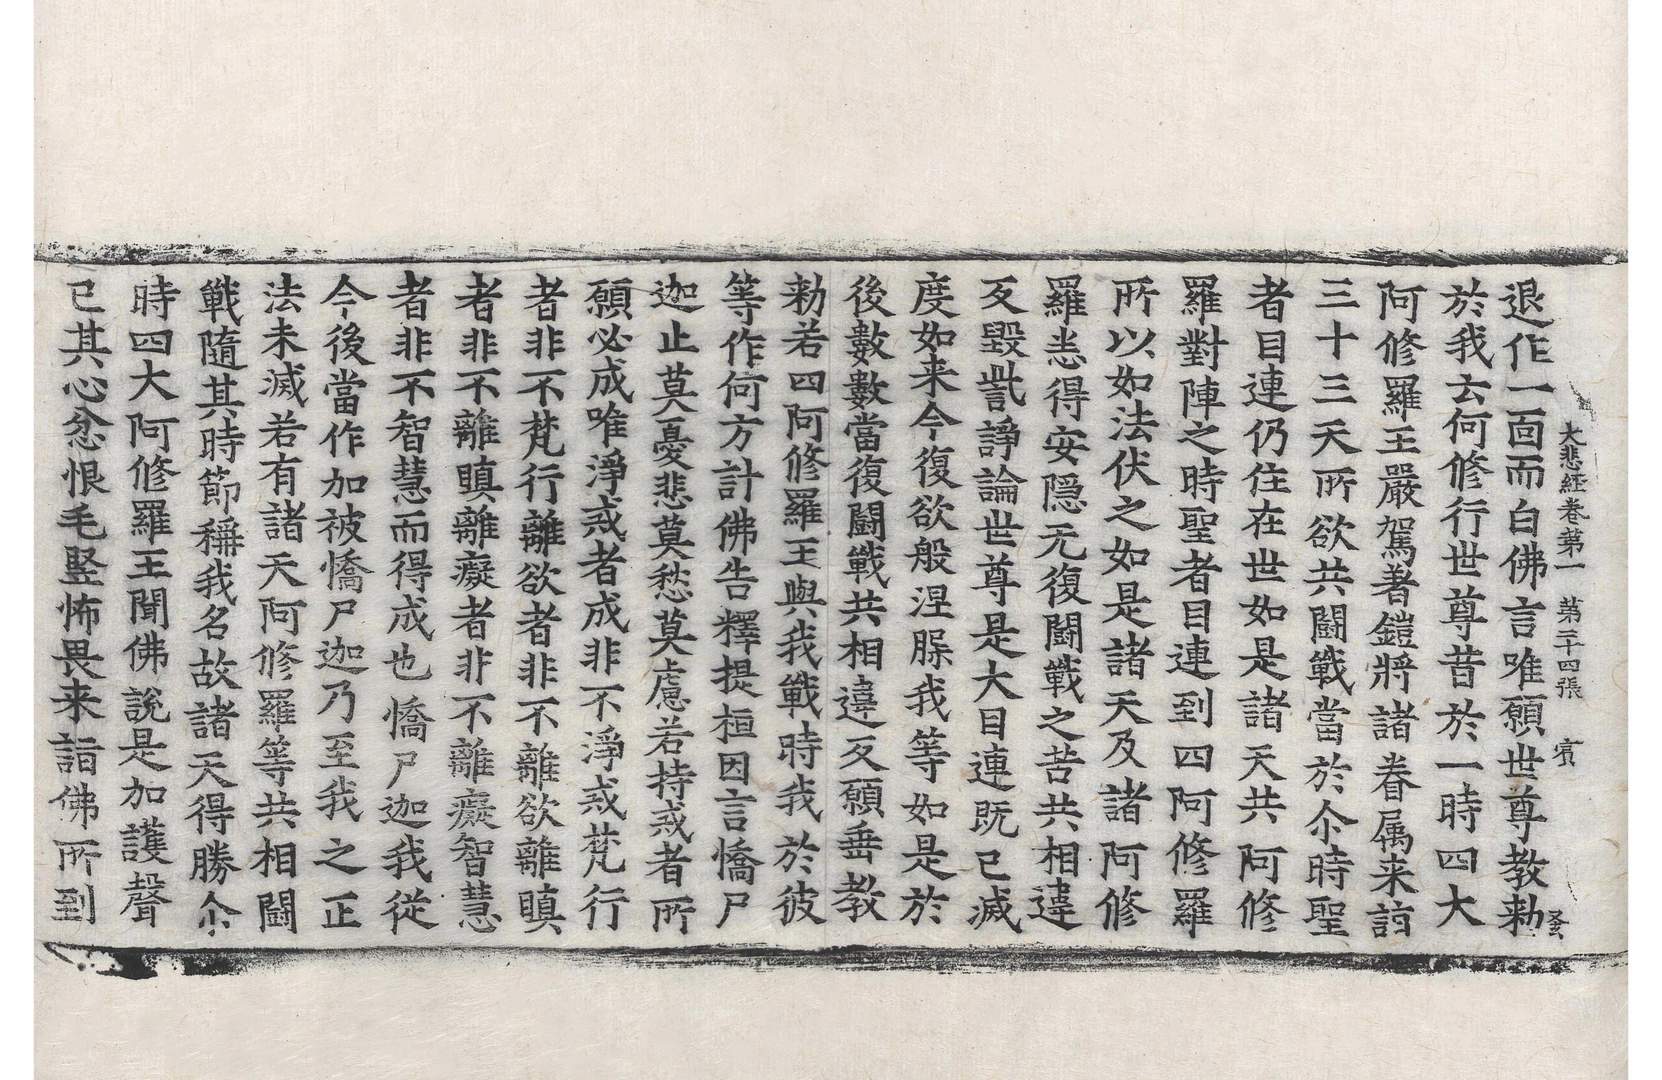 大悲經卷第一　第二十四張　賓
退作一面而白佛言唯願世尊教勑
於我云何修行世尊昔於一時四大
阿修羅王嚴駕著鎧將諸眷属来詣
三十三天所欲共闘戰當於尒時聖
者目連仍住在世如是諸天共阿修
羅對陣之時聖者目連到四阿修羅
所以如法伏之如是諸天及諸阿修
羅悉得安隠无復闘戰之苦共相違
反毀呰諍論世尊是大目連既已滅
度如来今復欲般涅槃我等如是於
後數數當復闘戰共相違反願垂教
勑若四阿修羅王與我戰時我於彼
等作何方計佛告釋提桓因言憍尸
迦止莫憂悲莫愁莫慮若持戒者所
願必成唯淨戒者成非不淨戒梵行
者非不梵行離欲者非不離欲離瞋
者非不離瞋離癡者非不離癡智慧
者非不智慧而得成也憍尸迦我從
今後當作加被憍尸迦乃至我之正
法未滅若有諸天阿修羅等共相闘
戰隨其時節稱我名故諸天得勝尒
時四大阿修羅王聞佛說是加護聲
已其心忿恨毛竪怖畏来詣佛所到